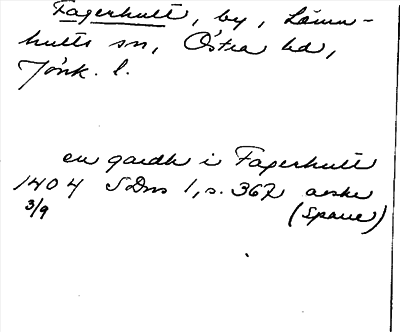 Fagerhult, by, Lämm-
hults sn, Östra hd,
Jönk. l.
en gardh i Fagerhult
1404 SDns 1, s. 367 avskr
3/9 (Spaue)